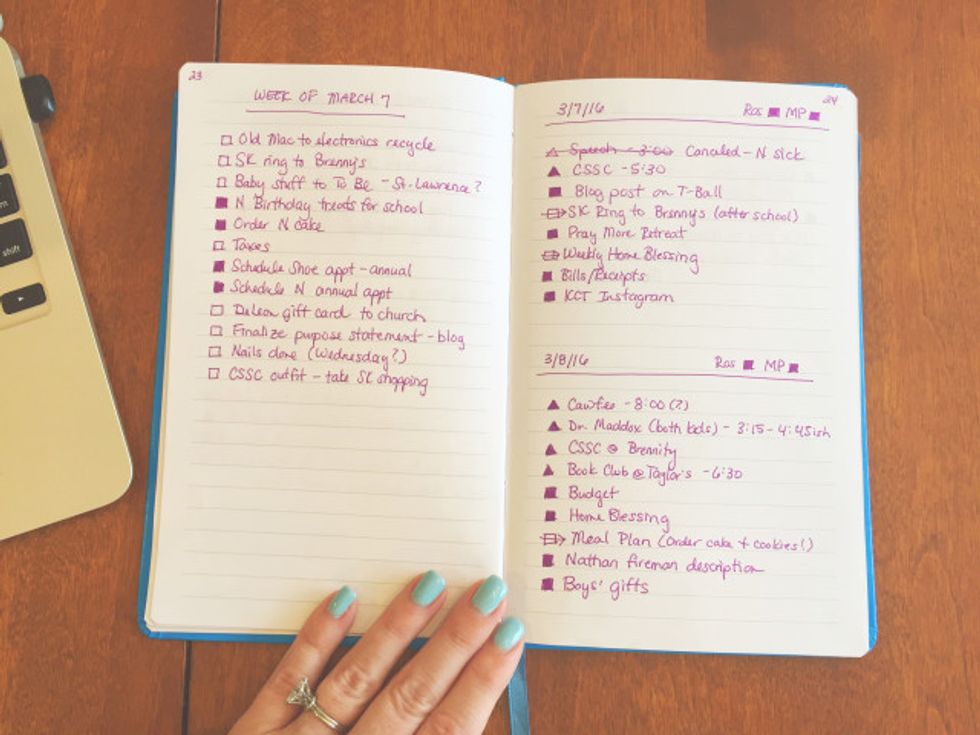 23
WEEK OF MARCH 7
Old Mac to electronics recycle
SK ring to Brenny's
Baby stuff to To Be - St. Lawrence?
N Birthday treats for school
Order N cake
Taxes
Schedule Shoe appt - annual
Schedule N annual appt
DeLeon gift card to church
Finalize purpose statement - blog
Nails done (Wednesday?)
CSSC outfit - take SK shopping
24
3/7/16 Ros MP
Speech - 3:00 Canceled - N sick
CSSC - 5:30
Blog post on T-Ball
SK Ring to Brenny's (after school)
Pray More Retreat
Weekly Home Blessing
Bills/Receipts
KCT Instagram
3/8/16 Ros MP
- 8:00 (?)
Dr. Maddox (both kids) - 3:15 - 4:45ish
CSSC @ Brennity
Book Club @ Taylor's - 6:30
Budget
Home Blessing
Meal Plan (Order cake + cookies!)
Nathan fireman description
Boys' gifts
shift